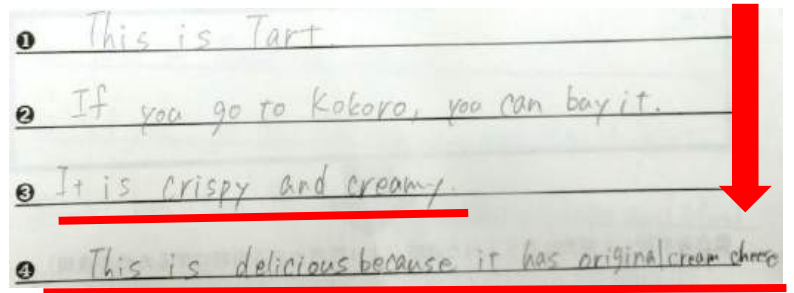 ❶ This is Tart.
❷ If you go to Kokoro, you can bay it.
❸ It is crispy and creamy.
❹ This is delicious because it has original cream cheese